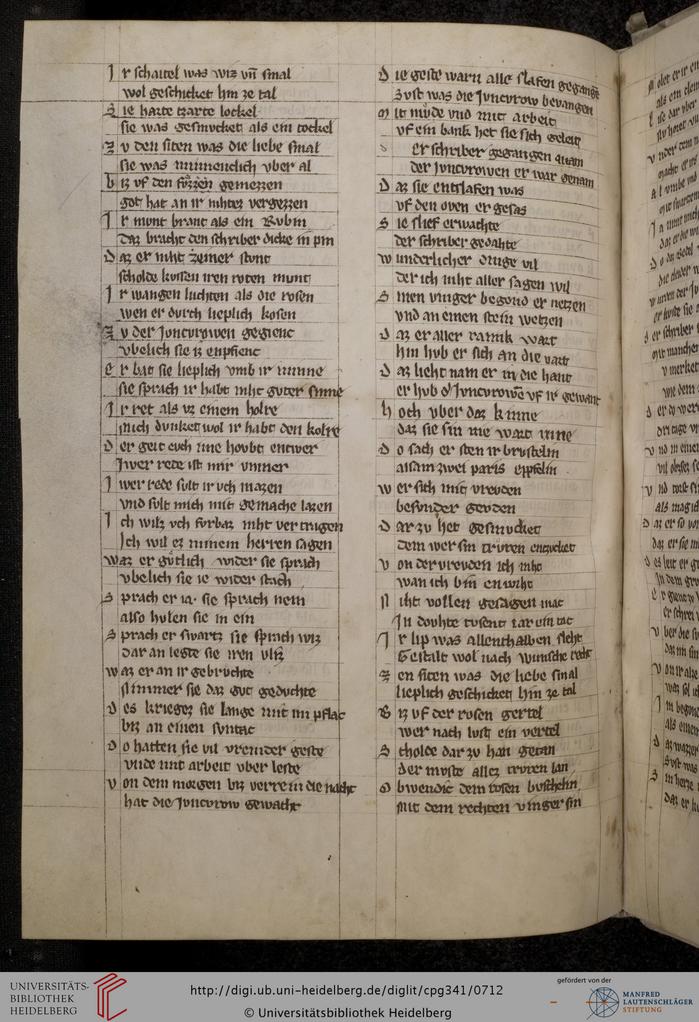 Ir schaitel was wiz vn̄ smal
wol geschicket hin ze tal
Sie hatte tzarte lockel
sie was gesmucket als ein tockel
Zv den siten was die liebe smal
sie was minnenclich vber al
biz vf den fvͤzzen gemezzen
got hat an ir nihtez vergezzen
Ir munt brant als ein Rubin
Daz bracht den schriber dicke in pin
Daz er niht zeiner stunt
scholde kussen iren roten munt
Ir wangen luchten als die rosen
wen er durch lieplich kosen
Zv der Joncvrowen gegienc
vbelich sie iz enpfienc
Er bat sie lieplich vmb ir minne
sie sprach ir habt niht guter sinne
Ir ret als vz einem holre
mich dunket wol ir habt den kolre
Der geit euch
Iwer rede ist mir vnmer
Iwer rede sult ir vch mazen
vnd sult mich mit gemache lazen
Ich wilz vch furbaz niht vertragen
Ich wil ez minem herren sagen
waz er gvͤtlich wider sie sprach
vbelich sie ie wider stach
Sprach er ia. sie sprach nein
also hulen sie in ein
Sprach er swartz sie sprach wiz
dar an legte sie iren vliz
waz er an ir gebruchte
nimmer sie daz gut geduchte
Des krieges sie lange mit im pflac
biz an einen suntac
Do hatten sie vil vremder geste
vnde mit arbeit vber leste
Von dem morgen biz verre in die nacht
hat die Juncvrow gewacht
Die geste warn alle slafen gegangen
Sust was die Juncvrow bevangen
Mit mvͤde vnd mit arbeit
vf ein bank het sie sich geleit
er schriber gegangen quam
der Juncvrowen er war genam
Daz sie entslafen was
vf den oven er gesas
Sie slief er wachte
der schriber gedahte
wunderlicher dinge vil
der ich niht aller sagen wil
Sinen vinger begond er netzen
vnd an einen stein wetzen
Daz er aller ramik wart
hin hvb er sich an die vart
Daz lieht nam er in die hant
er hvb d' Juncvrowē vf ir gewant
hoch vber daz kinne
daz sie sin nie wart inne
Do sach er sten ir brustelin
alsam zwei paris epfelin
wer sich mit vreuden
besunder geuden
Dar zv het gesmucket
dem wer sin truren enzucket
Von der vreuden ich niht
wan ich bin enwiht
Niht vollen gesagen mac
In douhte tusent iar ein tac
Ir lip was allenthalben sleht
Gestalt wol nach wunsche reht
Zen siten was die liebe smal
lieplich geschicket hin ze tal
Biz vf der rosen gertel
wer nach lust ein vertel
Scholde dar zv han getan
der muste allez truren lan
Obwendic dem rosen buschelin
Mit dem rechten vinger sin
UNIVERSITÄTS-
BIBLIOTHEK
HEIDELBERG
http://digi.ub.uni-heidelberg.de/diglit/cpg341/0712
© Universitätsbibliothek Heidelberg
gefördert von der
MANFRED
LAUTENSCHLÄGER
STIFTUNG